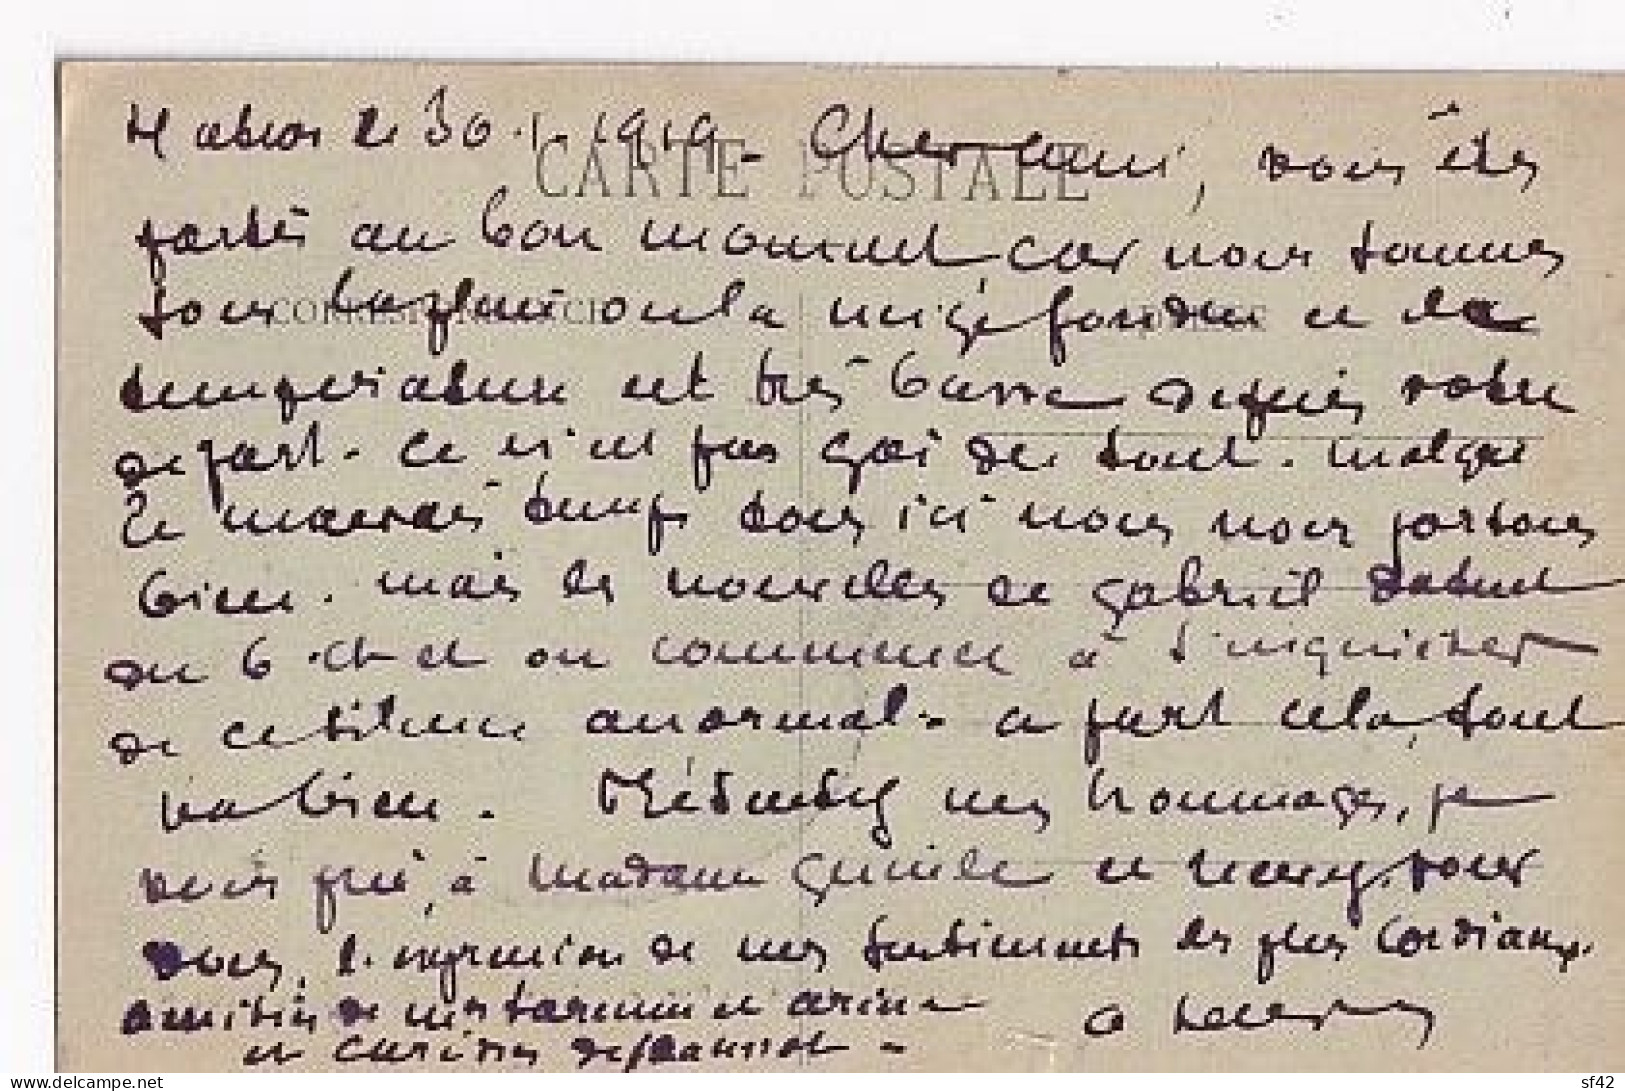 le 30.1.1919 - Cher ami, vous êtes
CARTE POSTALE
partis au bon moment car nous sommes
sous la pluie ou la neige fondue et la
température est très basse depuis votre
départ. Ce n'est pas gai du tout. malgré
ce mauvais temps tous ici nous nous portons
bien. mais les nouvelles de Gabriel datent
du 6 ct et on commence à s'inquiéter
de ce silence anormal. à part cela, tout
va bien. Présentez mes hommages, je
vous prie, à Madame et recevez, pour
vous, l'expression de mes sentiments les plus cordiaux.
amitiés de
et
delcampe.net
sf42